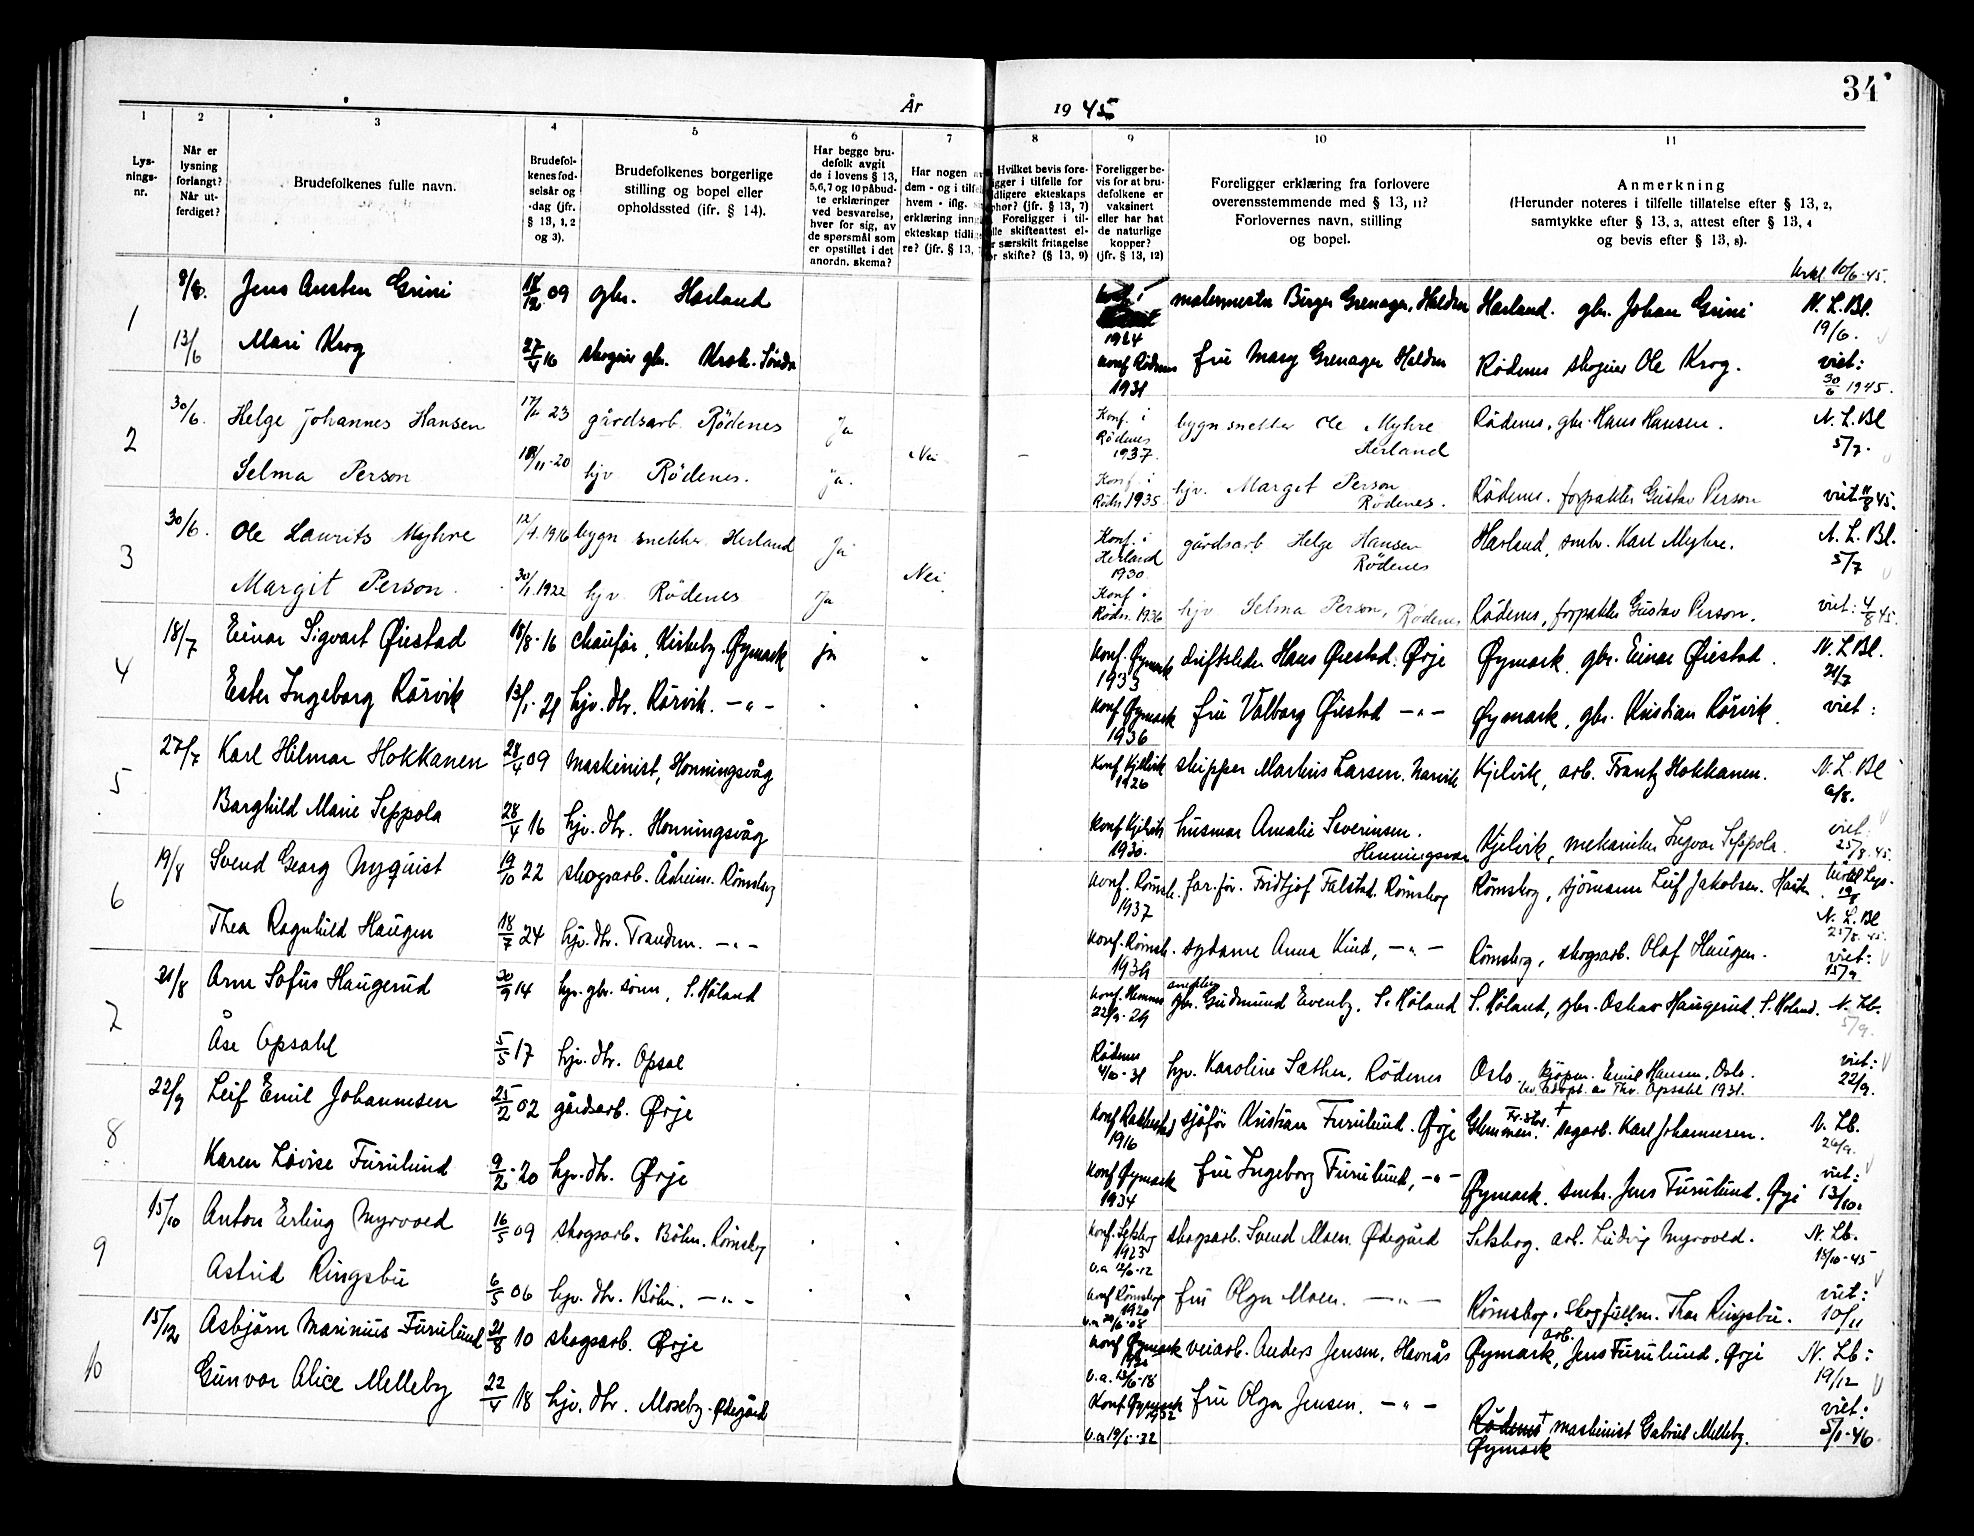 34
År 1945
1 2 3 4 5 6 7 8 9 10 11
Lysningsnr.
Når er lysning forlangt? Når utferdiget?
Brudefolkenes fulle navn.
Brudefolkenes fødselsår og -dag (jfr. § 13, 1, 2 og 3).
Brudefolkenes borgerlige stilling og bopel eller opholdssted (ifr. § 14).
Har begge brudefolk avgit de i lovens § 13, 5, 6, 7 og 10 påbudte erklæringer ved besvarelse, hver for sig, av de spørsmål som er opstillet i det anordn. skema?
Har nogen
dem - og i tilfel
hvem - iflg.
erklæring inng
ekteskap tidli
re? (jfr. § 13,
Hvilket bevis fore-
gger i tilfelle for
idligere ekteskaps
phør? (jfr. § 13, 7)
Foreligger i til-
lle skifteattest el-
r særskilt fritagelse
or skifte? (§ 13, 9)
Foreligger bevis for at brudefolkene er vaksinert eller har hat de naturlige kopper? (jfr. § 13, 12)
Foreligger erklæring fra forlovere overensstemmende med § 13, 11? Forlovernes navn, stilling og bopel.
Anmerkning (Herunder noteres i tilfelle tillatelse efter § 13, 2, samtykke efter § 13, 3, attest efter § 13, 4 og bevis efter § 13, 8).
10/6-45.
1 8/6. Jens Austen Grini 18/12 09 gbr. Harland 1924 malermester Birger Grenager, Halden Harland. gbr. Johan Grini N. L. Bl. 19/6.
13/6 Mari Krog 27/4 16 skogeier gbr. Krok. konf Rödenes 1931 fru Mary Grenager Halden Rödenes skogeier Ole Krog. viet: 30/6 1945.
2 30/6. Helge Johannes Hansen 23 gårdsarb. Rödenes Ja Nei - Konf. i Rödenes 1937. bygn snekker Ole Myhre Herland Rödenes, gbr. Hans Hansen. N. L. Bl 5/7.
Selma Person 18/11-20 hjv Rödenes. ja. Konf. i Röden 1935 hjv. Margit Person Rödenes. Rödenes. forpakter Gustav Person viet 45.
3 30/6. Ole Laurits Myhre 12/4.1916 bygn snekker. Herland Ja Nei. Konf. i Herland 1930. gårdsarb Helge Hansen Rödenes Harland, smbr. Karl Myhre. N. L. Bl. 5/7
Margit Person. 30/1.1922 hjv Rödenes Ja Konf i Röden. 1936 hjv Selma Person, Rödenes Rödenes, forpakter Gustav Person. viet: 4/8 45.
4 18/7 Einar Sigvart Øiestad 18/8-16 chauför, Kirkeby. Øymark ja " Konf. Øymark 1933 driftsleder Hans Øiestad. Ørje Øymark. gbr. Einar Øiestad. N. L Bl.
Ester Ingeborg Rörvik 13/1-21 hjv. dtr. Rörvik. -"- konf Øymark 1936 fru Valborg Øiestad -"- Øymark, gbr. Kristian Rörvik. viet:
5 27/7 Karl Hilmar Hokkanen 28/4 09 maskinist, Honningsvåg Konf Kjelvik 1926 skipper Martius Larsen. Narvik Kjelvik, arb. Frantz Hokkanen. N. L. Bl
Borghild Marie Seppola 28/4 16 hjv. dtr. Honningsvåg konf Kjelvik 1930. husmor Amalie Severinsen. Henningsvær Kjelvik, mekaniker Ingvar Seppola. viet: 25/8.45.
6 19/8 Svend Georg Nyquist 19/10 22 skogsarb. Åsheim. Römskog konf. Römsk. 1937 Fridtjof Falstad. Römskog Römskog, sjömann Leif Jakobsen. N. L. Bl 21/8.45.
Thea Ragnhild Haugen 18/7 24 hjv. dtr. Tranderm. -"- konf. Römsk. sydame Anna Kind, -"- Römskog, skogsarb. Olaf Haugen. viet: 15/9.
7 21/8 Arne Sofus Haugerud 30/9 14 gbr. sönn, S. Höland konf. Hemnes gbr. Gudmund Evenby, S. Höland S. Höland, gbr. Oskar Haugerud, S. Höland. N. Lb. 5/9.
Åse Opsahl 5/5 17 hjv. dtr. Opsal Rödenes hjv. Karoline Sæther, Rödenes Oslo, kjöpm. Emil Hansen, Oslo. adopt. av Thv. Opsahl 1931. viet: 22/9.
8 22/9 Leif Emil Johannesen 25/2 02 gårdsarb. Ørje Konf Rakkestad 1916 sjåför Kristian Furulund. Ørje Glemmen. Fr.stad † sagarb. Karl Johannesen. N. Lb. 26/9.
Karen Lovise Furulund 9/2-20 hjv. dtr. Ørje konf Øymark 1934 fru Ingeborg Furulund, -"- Øymark, smbr. Jens Furulund. Ørje viet: 13/10.
9 15/10 Anton Erling Myrvold 16/5 09 skogsarb. Böhn. Römskog konf. Setskog 1923 skogsarb. Svend Moen. Ødegård Setskog. arb. Ludvig Myrvold. N. Lb. 15/10-45
Astrid Ringsbu 6/5 06 hjv. dtr. Böhn. -"- konf Römskog 1920 fru Olga Moen. -"- Römskog. Skogfullm. Thor Ringsbu. viet: 10/11
10 15/12 Asbjörn Marinius Furulund 21/8 10 skogsarb. Ørje konf Øymark veiarb. Anders Jensen, Havnås Øymark, arb. Jens Furulund. Ørje N. Lb: 19/12
Gunvor Alice Melleby 22/4 18 hjv. dtr. Moseby. Ødegård Konf Øymark 1932 v.a 19/5-32 fru Olga Jensen. -"- Rödenes † maskinist Gabriel Melleby. Øymark viet: 5/1-46